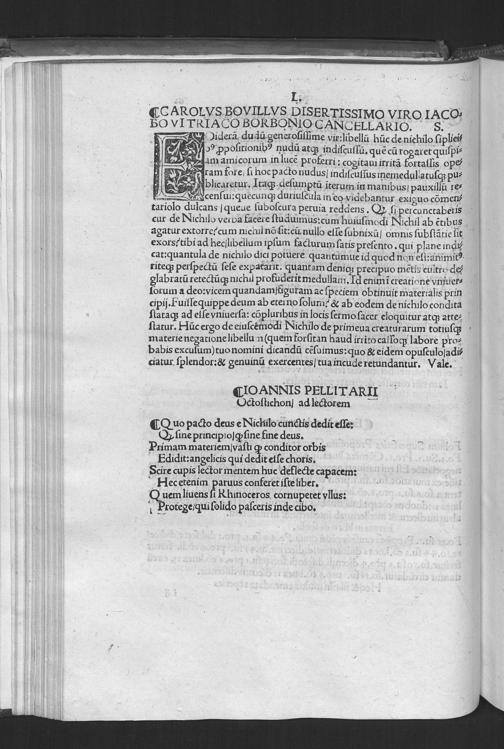 L.
¶CAROLVS BOVILLVS DISERTISSIMO VIRO IACO-
BO VITRIACO BORBONIO CANCELLARIO. S.
EDiderā dudū generosissime vir: libellū hūc de nichilo suplicib
ꝰ ꝓpositionibꝰ nudū atqꝫ indiscussū. quē cū rogaret quispi-
am amicorum in lucē proferri: cogitaui irritā fortassis ope-
ram fore, si hoc pacto nudus/ indiscussus inemedulatusqꝫ pu-
blicaretur. Itaqꝫ desumptū iterum in manibus/ pauxillū re-
censui: quecunqꝫ duriuscula in eo videbantur exiguo cōmen
tariolo dulcans/ queue subobscura peruia reddens. Qꝫ si percunctaberis
cur de Nichilo verba facere studuimus: cum huiusmodi Nichil ab ētibus
agatur extorre/ cum nichil nō sit: eū nullo esse subnixū/ omnis substātie sit
exors: tibi ad hec/ libellum ipsum facturum satis presento. qui plane indi-
cat: quantula de nichilo dici potuere. quantumue id quod non est: animit
riteqꝫ perspectū sese expatarit. quantam deniqꝫ precipuo mētis cultro de-
glabratū retectūqꝫ nichil profuderit medullam. Id enim ī creatione vniuer-
sorum a deo: vicem quandam/ figuram ac speciem obtinuit materialis prin
cipij. Fuisse quippe deum ab eterno solum: & ab eodem de nichilo condita
stataqꝫ ad esse vniuersa: cōpluribus in locis sermo sacer eloquitur atqꝫ atte-
statur. Hūc ergo de eiuscemodi Nichilo de primeua creaturarum totiusqꝫ
materie negatione libellum (quem forsitan haud irrito cassoqꝫ labore pro-
babis excusum) tuo nomini dicandū cēsuimus: quo & eidem opusculo/ adij
ciatur splendor: & genuinū exercentes/ tua incude retundantur. Vale.
¶IOANNIS PELLITARII
Octostichon/ ad lectorem
¶Quo pacto deus e Nichilo cunctis dedit esse:
Qꝫ sine principio/ qꝫ sine fine deus.
Primam materiem/ vasti qꝫ conditor orbis
Edidit: angelicis qui dedit esse choris.
Scire cupis lector mentem huc deflecte capacem:
Hec etenim paruus conferet iste liber.
Quem liuens si Rhinoceros cornupetet vllus:
Protege/ qui solido pasceris inde cibo.